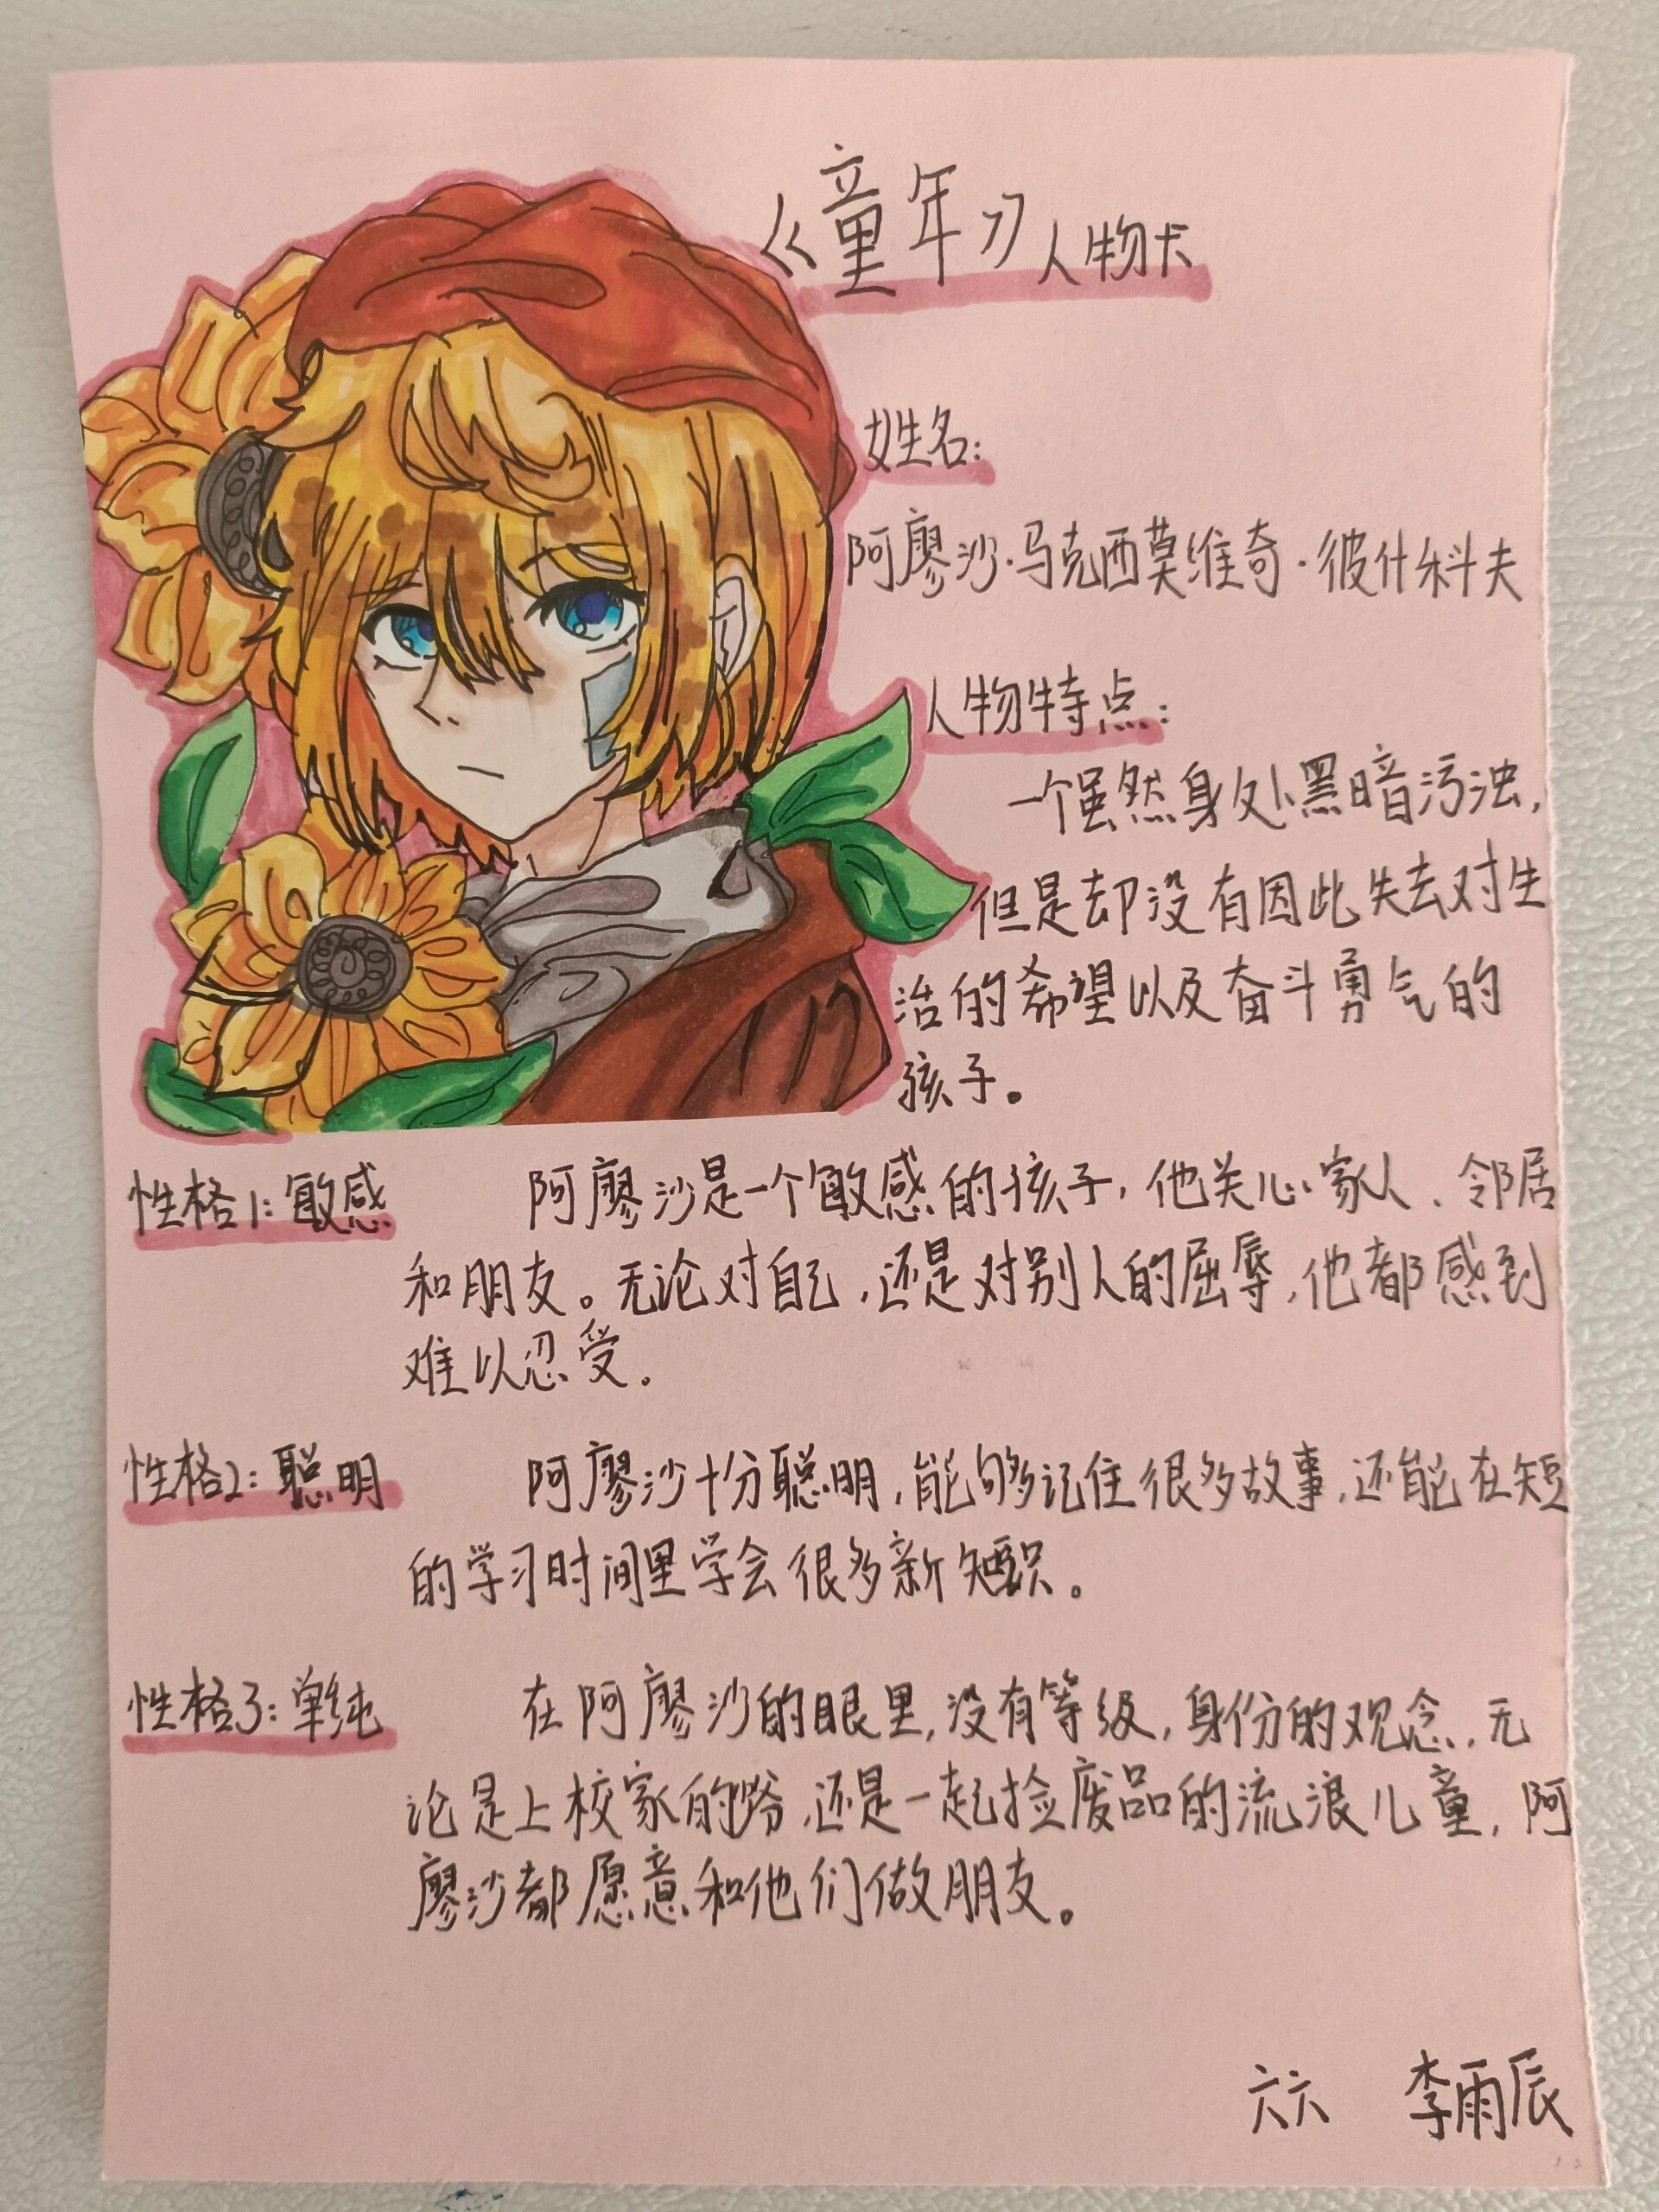 《童年》人物卡
姓名:
阿廖沙·马克西莫维奇·彼什科夫
人物特点:
一个虽然身处黑暗污浊,
但是却没有因此失去对生
活的希望以及奋斗勇气的
孩子。
性格1:敏感 阿廖沙是一个敏感的孩子,他关心家人、邻居
和朋友。无论对自己,还是对别人的屈辱,他都感到
难以忍受。
性格2:聪明 阿廖沙十分聪明,能够记住很多故事,还能在短
的学习时间里学会很多新知识。
性格3:单纯 在阿廖沙的眼里,没有等级,身份的观念,无
论是上校家的爷,还是一起捡废品的流浪儿童,阿
廖沙都愿意和他们做朋友。
六六 李雨辰